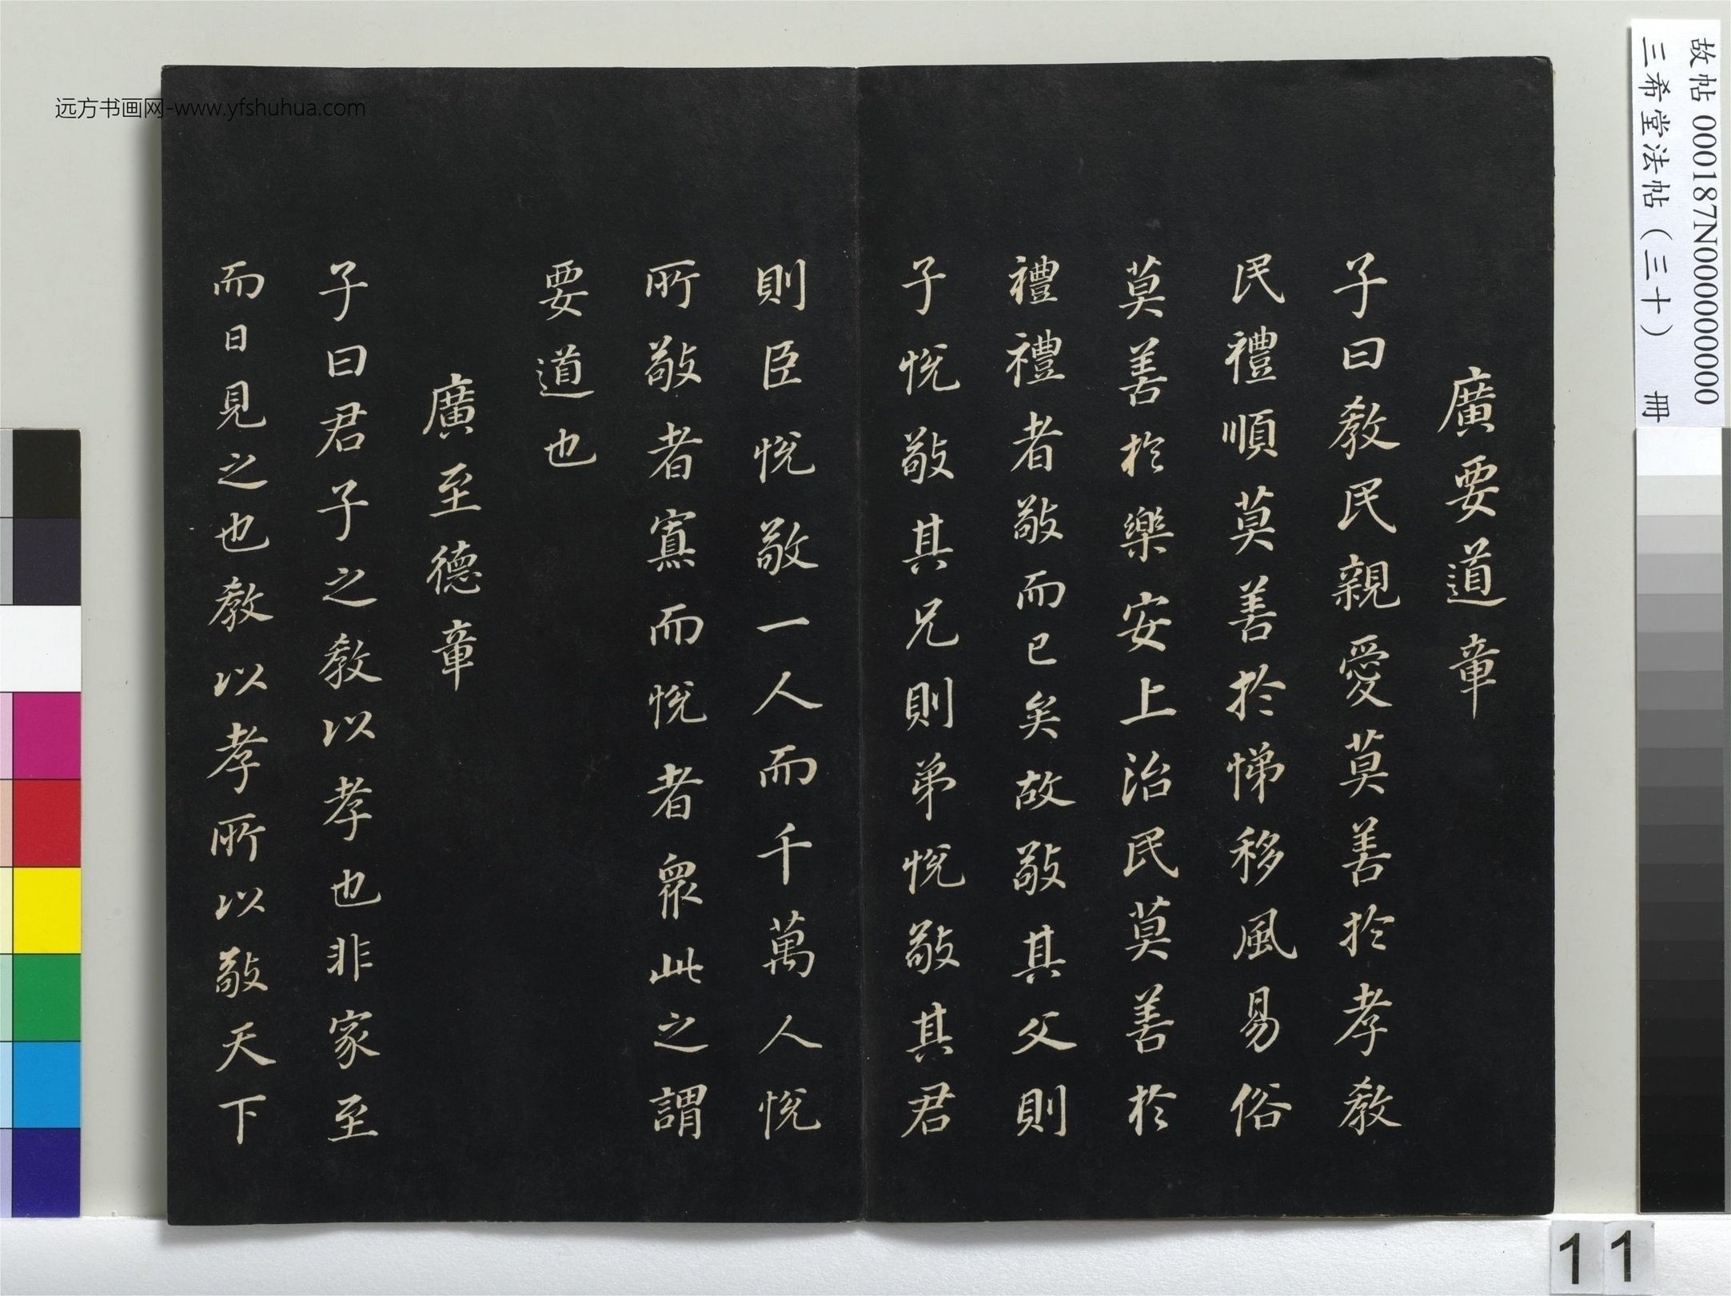 廣要道章
子曰教民親愛莫善於孝教
民禮順莫善於悌移風易俗
莫善於樂安上治民莫善於
禮禮者敬而已矣故敬其父則
子悅敬其兄則弟悅敬其君
則臣悅敬一人而千萬人悅
所敬者寡而悅者眾此之謂
要道也
廣至德章
子曰君子之教以孝也非家至
而日見之也教以孝所以敬天下
故帖 000187N000000000
三希堂法帖（三十） 冊
远方书画网-www.yfshuhua.com
11